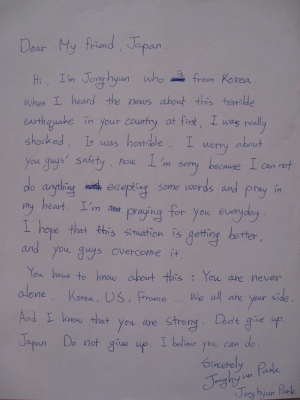 Dear My friend, Japan.
Hi, I'm Jonghyun who is from Korea.
When I heard the news about this terrible
earthquake in your country at first, I was really
shocked. It was horrible. I worry about
you guys' safety now. I'm sorry because I can not
do anything excepting some words and pray in
my heart. I'm praying for you everyday.
I hope that this situation is getting better,
and you guys overcome it.
You have to know about this : You are never
alone. Korea, US, France... We all are your side.
And I know that you are strong. Don't give up.
Japan Do not give up. I believe you can do.
Sincerely
Jonghyun Park
Jonghyun Park